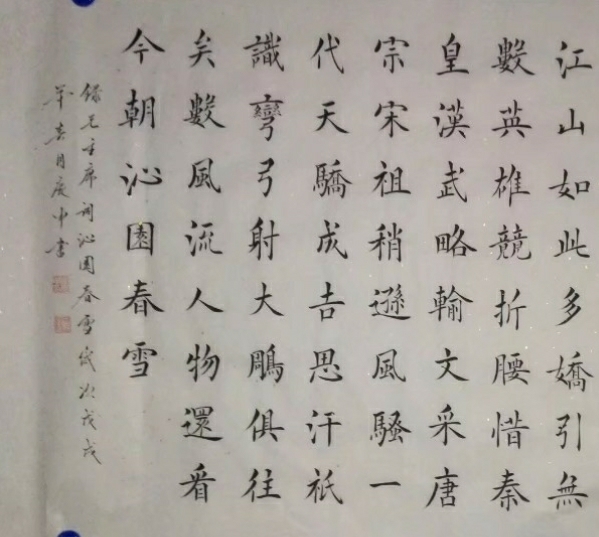 江山如此多嬌引無
數英雄競折腰惜秦
皇漢武略輸文采唐
宗宋祖稍遜風騷一
代天驕成吉思汗祇
識彎弓射大鵰俱往
矣數風流人物還看
今朝沁園春雪
錄毛主席詞沁園春雪歲次戊戌
年春月庚中書